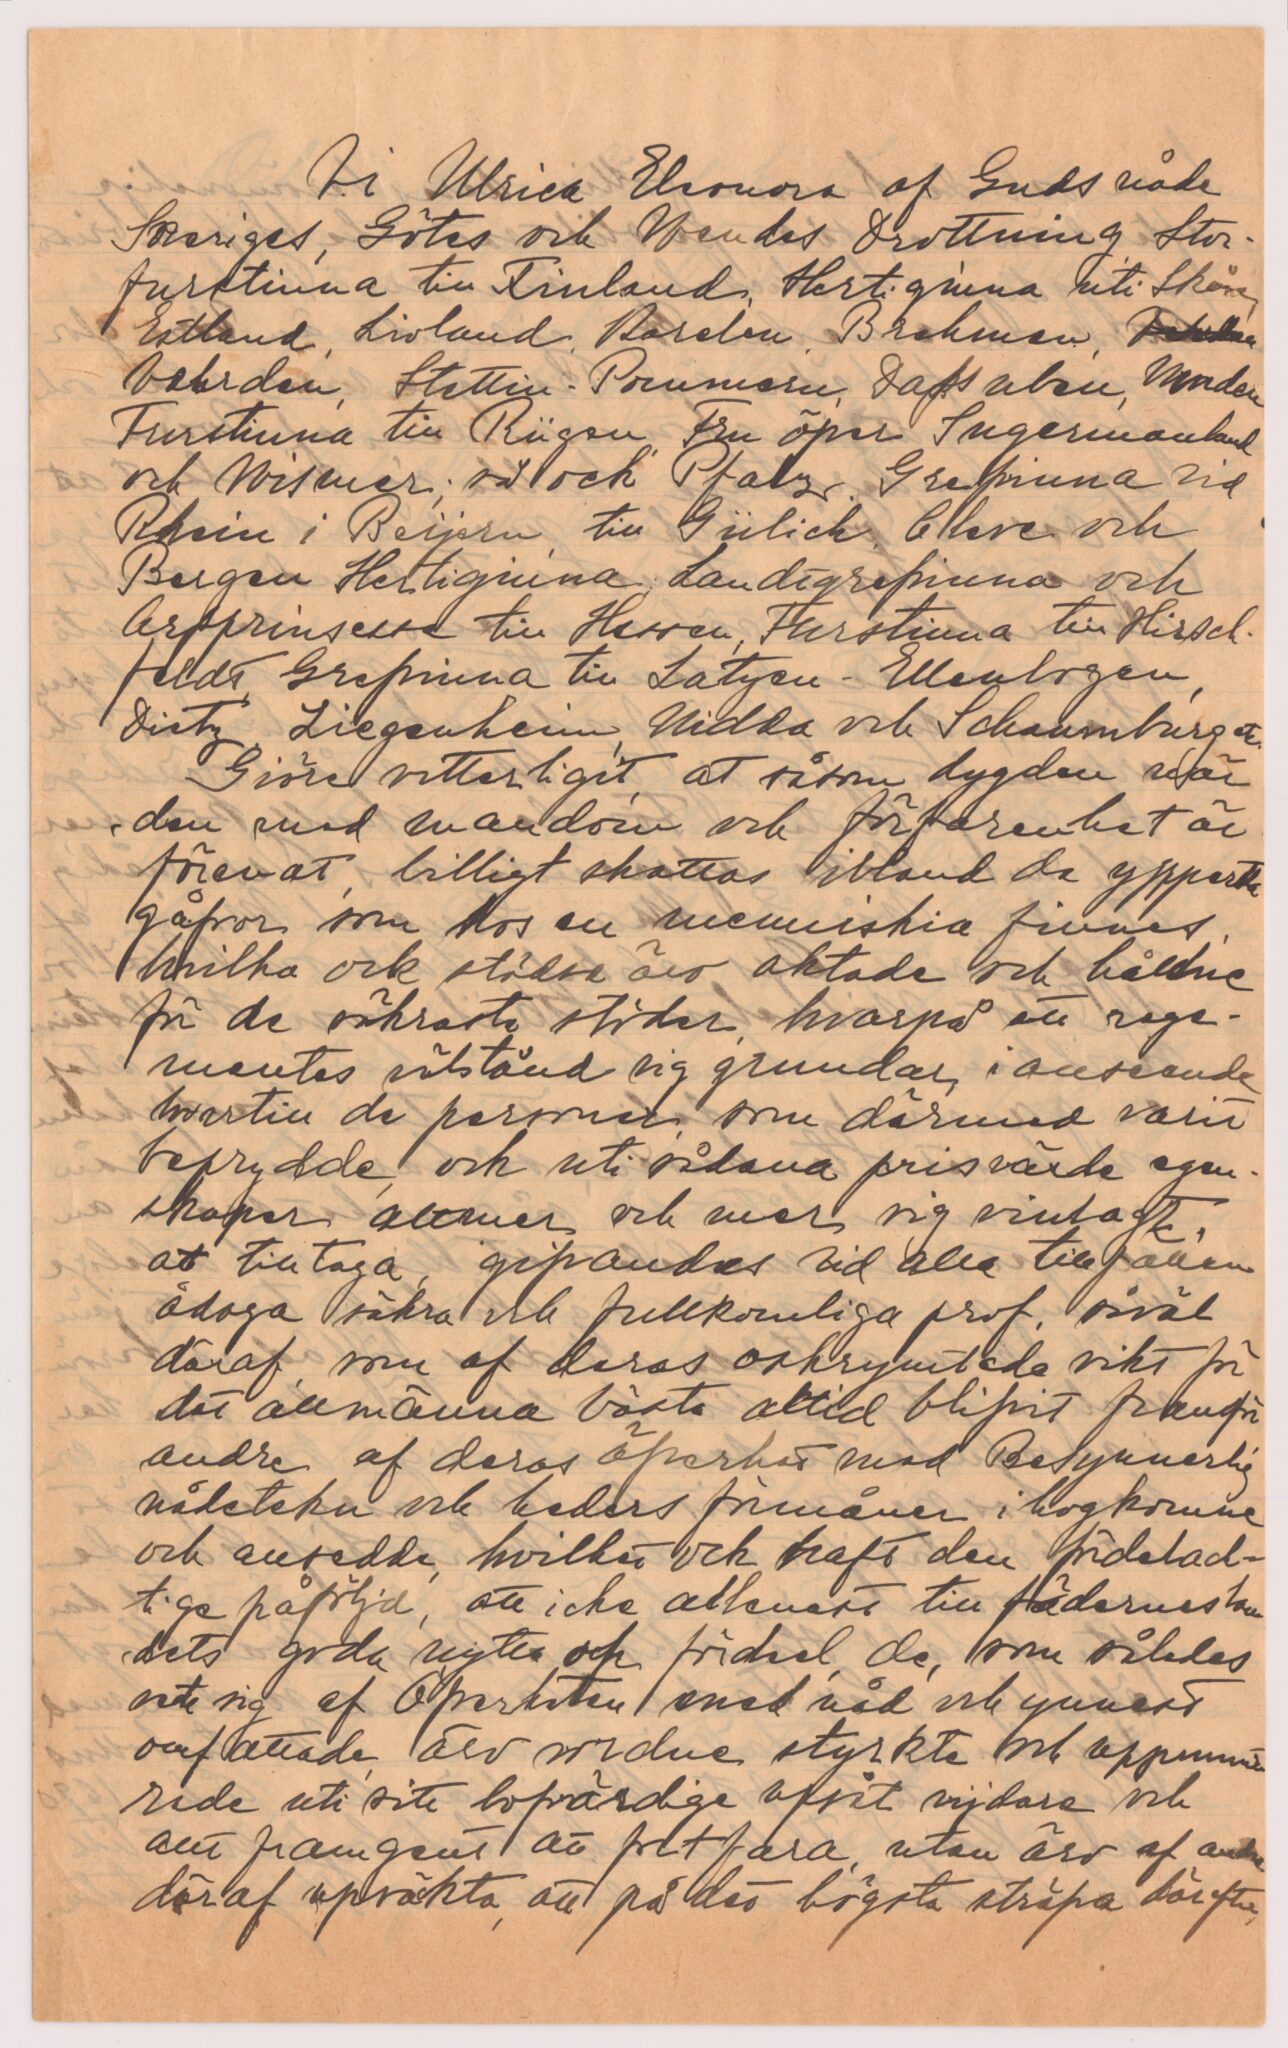 Vi Ulrica Eleonora af Guds nåde
Sveriges, Götes och Wendes Drottning Stor-
furstinna till Finland, Hertiginna uti Skåne,
Estland, Livland, Karelen, Brehmen,
Vehrden, Stettin-Pommern, Cassuben, Wenden
Furstinna till Rügen, Fru öfver Ingermanland
och Wismar; så ock Pfaltz Grefvinna vid
Rhein i Beijern, till Gülich, Cleve och
Bergen Hertiginna, Landtgrefvinna och
Arfprinsessa till Hessen, Furstinna till Hirsch-
feldt, Grefvinna till Catzen-Ellenbogen,
Dietz, Ziegenheim, Nidda och Schaumburg etc.
Giöre vetterligit, at såsom dygden när
den med mandom och förfarenhet är
förenat, billigt skattas ibland de ypperste
gåfvor, som hos en menniskia finnes,
hvilka ock städse äro aktade och håldne
för de säkraste stöder, hvarpå ett rege-
mentes välstånd sig grundar, i anseende
hvartill de personer, som därmed varit
beprydde, och uti sådana prisvärde egen-
skaper allmer och mer sig vinlagt,
at tilltaga, gifvandes vid alla tillfällen
ådaga säkra och fullkomliga prof, såväl
däraf, som af deras oskrymtade vikt för
det allmänna bästa altid blifvit framför
andre af deras Öfverhet med Besynnerlig
nådetekn och heders förmåner ihogkomne
och ansedde, hvilket ock haft den fördelac-
tige påföljd, att icke allenast till fädernes lan
dets goda nytta och fördeel, de, som således
sett sig af Öfverheten med nåd och ynnest
omfattade, äro vordne styrkte och uppmun
rade uti sitt lofvärdige upsåt vijdare och
allt framgent att fortfara, utan äro af andre
däraf upväkta, att på det högsta sträfva därefter,